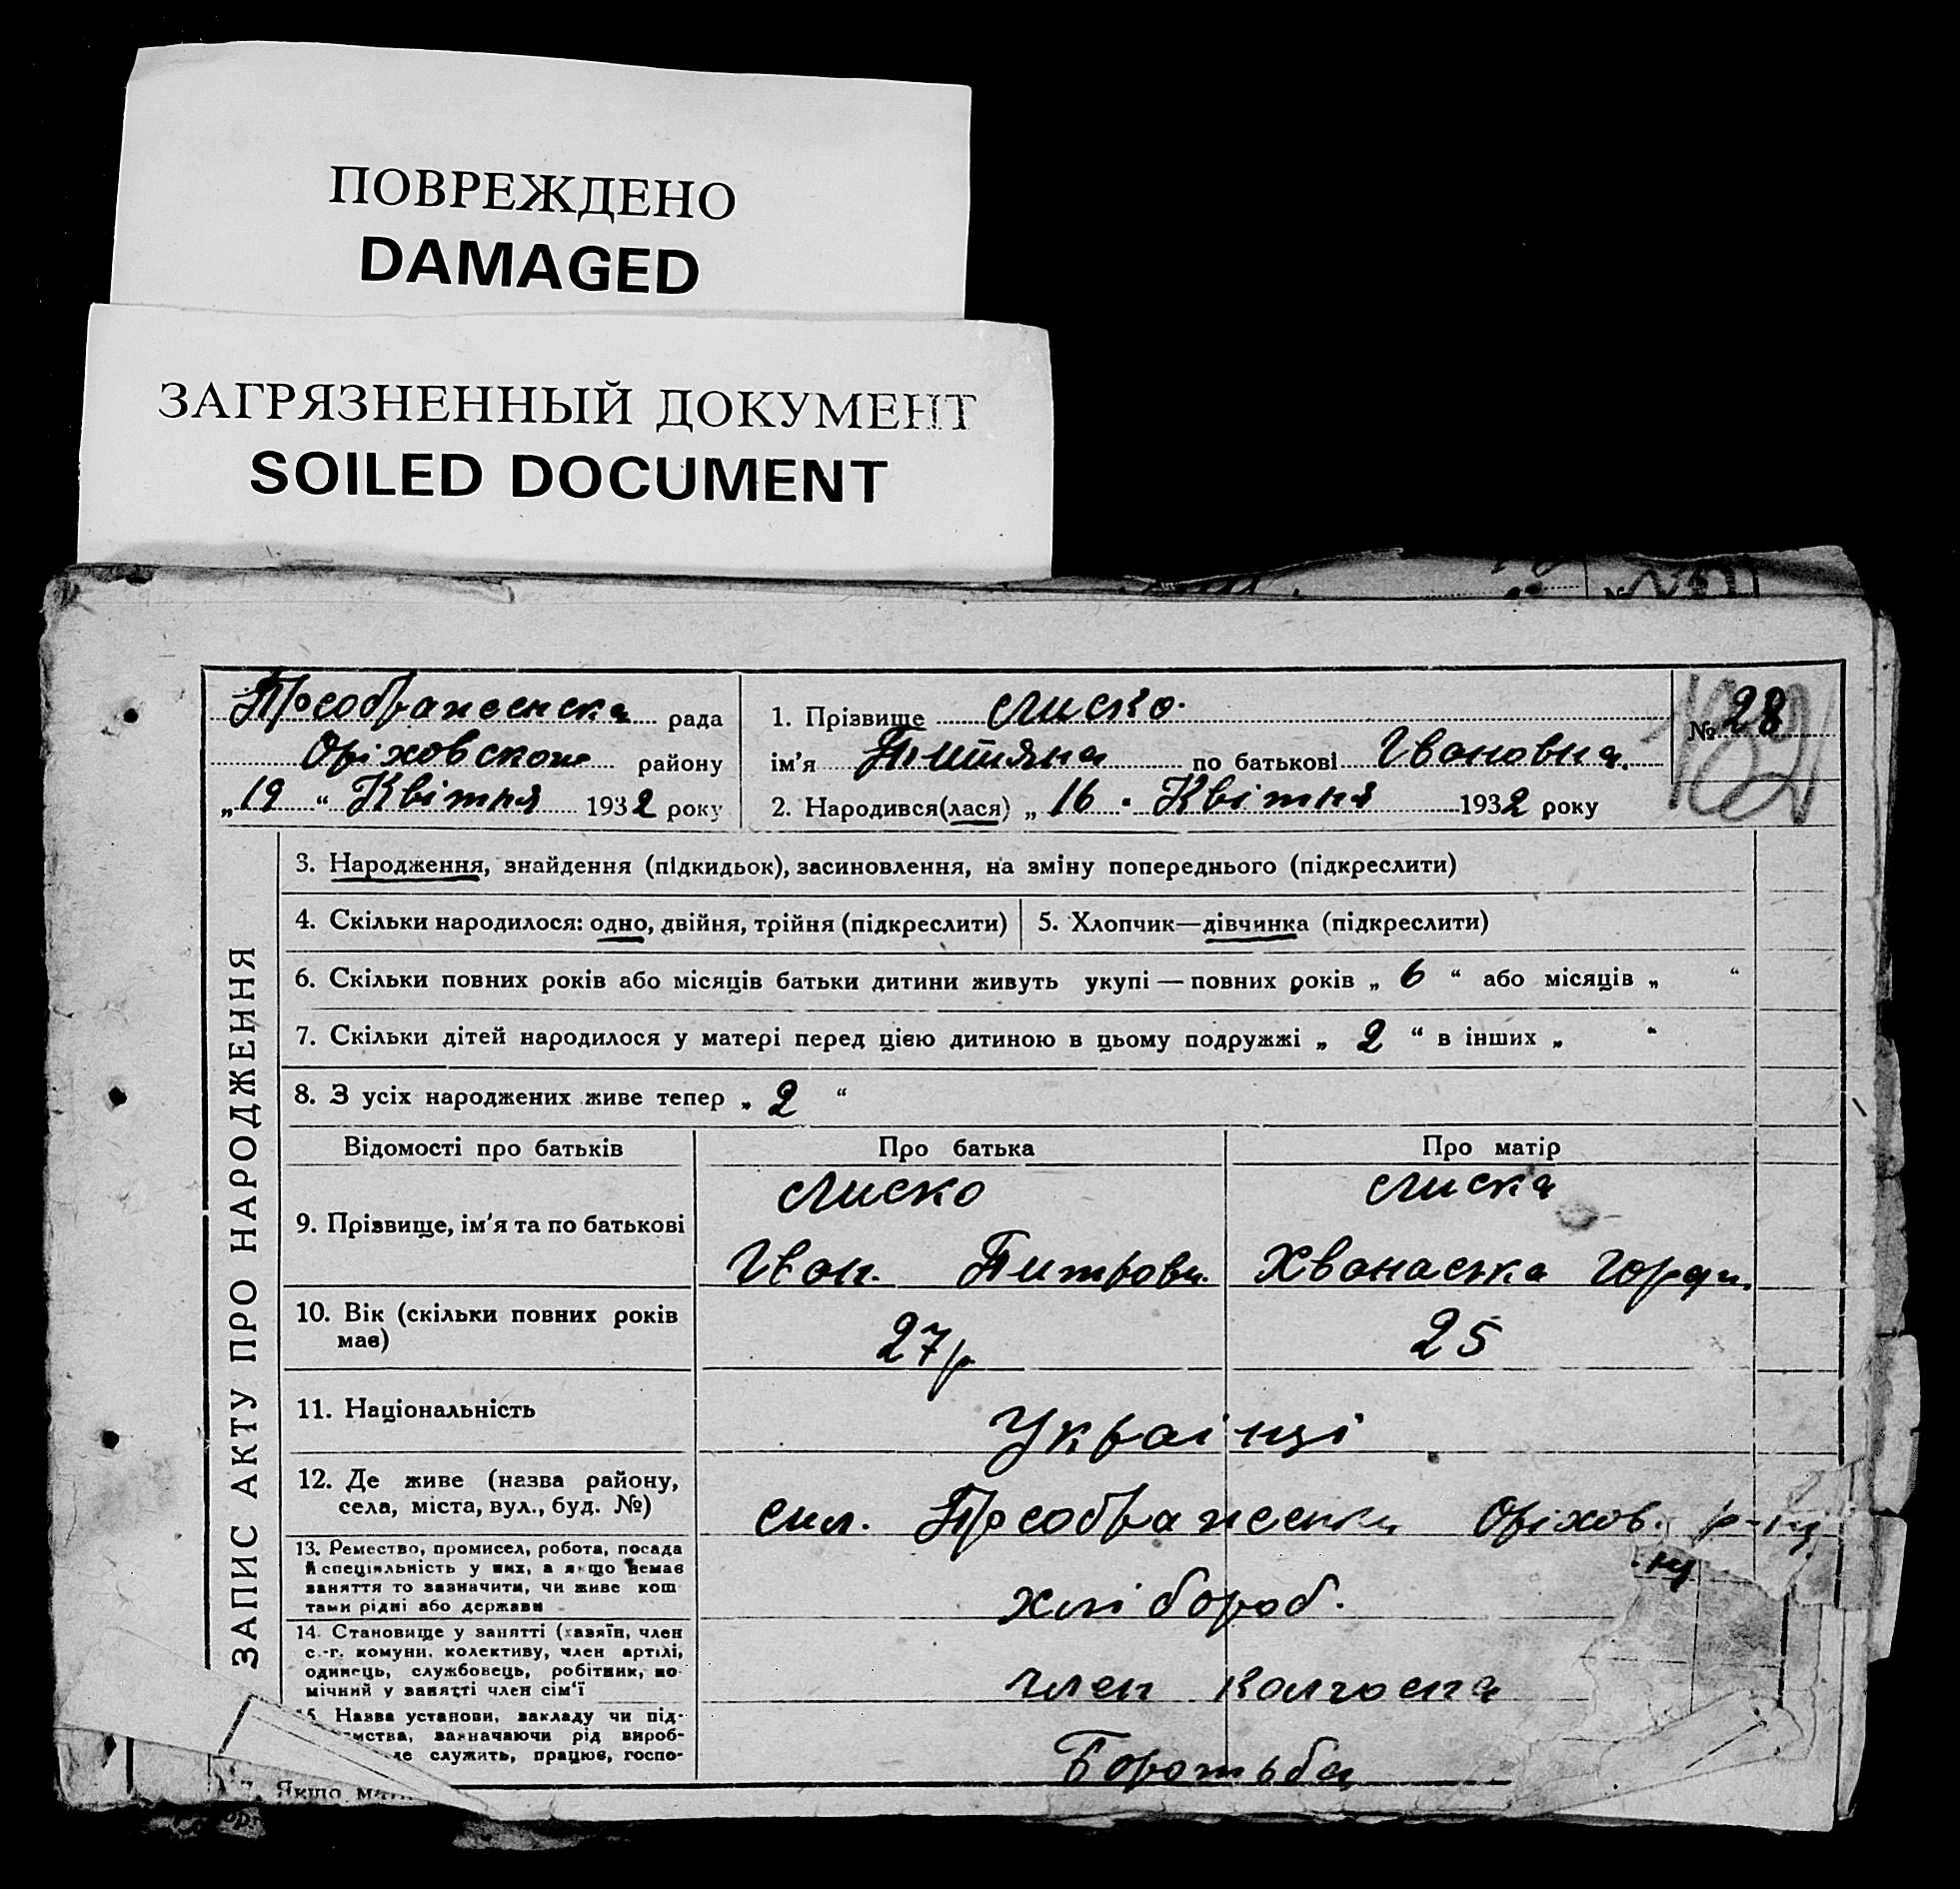 ПОВРЕЖДЕНО
DAMAGED
ЗАГРЯЗНЕННЫЙ ДОКУМЕНТ
SOILED DOCUMENT
Преображенска рада
Оріховского району
„19“ Квітня 1932 року
1. Прізвище Лиско.
ім'я Титяна по батькові Ивановна.
2. Народився(лася) „16" Квітня 1932 року
№ 28
ЗАПИС АКТУ ПРО НАРОДЖЕННЯ
3. Народження, знайдення (підкидьок), засиновлення, на зміну попереднього (підкреслити)
4. Скільки народилося: одно, двійня, трійня (підкреслити)
5. Хлопчик—дівчинка (підкреслити)
6. Скільки повних років або місяців батьки дитини живуть укупі — повних років „ 6 “ або місяців „ “
7. Скільки дітей народилося у матері перед цією дитиною в цьому подружжі „ 2 “ в інших „ “
8. З усіх народжених живе тепер „ 2 “
Відомості про батьків Про батька Про матір
9. Прізвище, ім'я та по батькові
Лиско Лиска
Иван. Питрови. Хванаська Горди.
10. Вік (скільки повних років має)
27р 25
11. Національність
Українці
12. Де живе (назва району,
села, міста, вул., буд. №)
сил. Преображенки Оріхов. р-ну
13. Ремество, промисел, робота, посада
й спеціяльність у них, а якщо немає
заняття то зазначити, чи живе кош
тами рідні або держави
хлібороб.
14. Становище у занятті (хазяїн, член
с.-г. комуни, колективу, член артілі,
одинець, службовець, робітник, по-
мічний у занятті член сім'ї
член колгоспа
15. Назва установи, закладу чи під-
мства, зазначаючи рід вироб-
де служить, працює, госпо-
Боротьба
Якщо